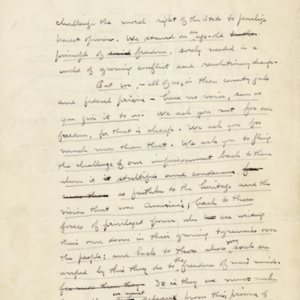 challenge the moral right of the state to penalize
honest opinion. We stand on an age-old
principle of freedom, sorely needed in a
world of growing conflict and revolutionary change.
But we, all of you, in these county jails
and federal prisons - have no voice, save as
you give it to us. We ask you not for our
freedom, for that is cheap. We ask you for
much more than that. We ask you to fling
the challenge of our imprisonment back to those
whom it
as faithless to the heritage and the
vision that was America's; back to those
forces of privileged power who are writing
their own doom in their growing tyrannies over
the people; and back to those whose souls are
warped by this they do to the freedom of men's minds.
So is they we must
from this prison of